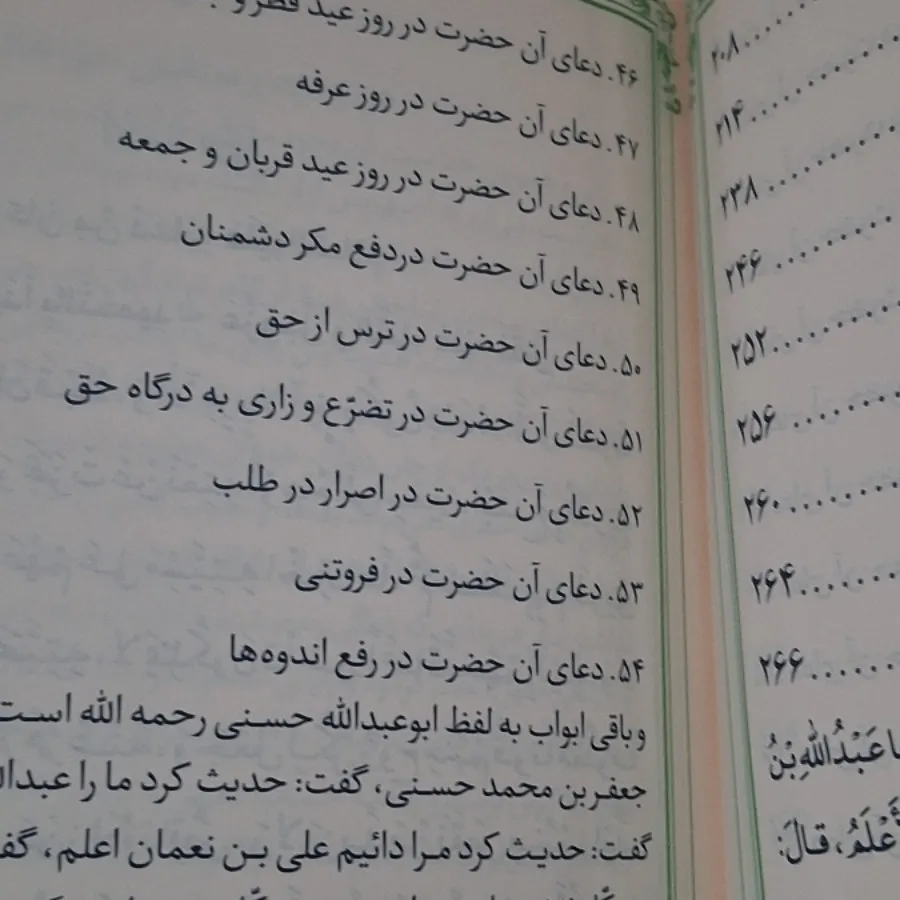 ۴۶. دعای آن حضرت در روز عید فطر و
۴۷. دعای آن حضرت در روز عرفه
۴۸. دعای آن حضرت در روز عید قربان و جمعه
۴۹. دعای آن حضرت در دفع مکر دشمنان
۵۰. دعای آن حضرت در ترس از حق
۵۱. دعای آن حضرت در تضرّع و زاری به درگاه حق
۵۲. دعای آن حضرت در اصرار در طلب
۵۳. دعای آن حضرت در فروتنی
۵۴. دعای آن حضرت در رفع اندوه‌ها
و باقی ابواب به لفظ ابوعبدالله حسنی رحمه الله است
جعفر بن محمد حسنی، گفت: حدیث کرد ما را
گفت: حدیث کرد مرا دائیم علی بن نعمان اعلم،
۲۰۸
۲۱۴
۲۳۸
۲۴۶
۲۵۲
۲۵۶
۲۶۰
۲۶۴
۲۶۶
عَبْدُاللهِ بْنُ
أَعْلَمُ، قالَ: